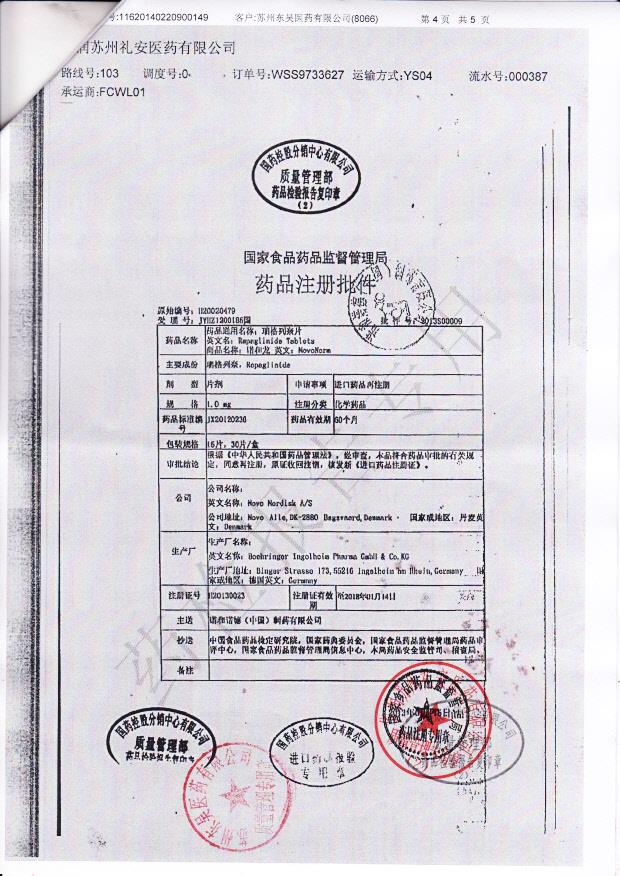 号:11620140220900149 客户:苏州东吴医药有限公司(8066) 第 4 页 共 5 页
润苏州礼安医药有限公司
路线号:103 调度号:0 订单号:WSS9733627 运输方式:YS04 流水号:000387
承运商:FCWL01
国药控股分销中心有限公司
质量管理部
药品检验报告复印章
(2)
国家食品药品监督管理局
药品注册批件
原始编号: H20020479
受 理 号: JYHZ1200186国
批 件 号: 2013S00009
药品名称
药品通用名称: 瑞格列奈片
英文名: Repaglinide Tablets
商品名称: 诺和龙 英文: NovoNorm
主要成份 瑞格列奈, Repaglinide
剂 型 片剂 申请事项 进口药品再注册
规 格 1.0 mg 注册分类 化学药品
药品标准编号 JX20120236 药品有效期 60个月
包装规格 15片, 30片/盒
审批结论 根据《中华人民共和国药品管理法》, 经审查, 本品符合药品审批的有关规定, 同意再注册, 原证收回注销, 核发新《进口药品注册证》。
公司
公司名称:
英文名称: Novo Nordisk A/S
公司地址: Novo Alle,DK-2880 Bagsvaerd,Denmark 国家或地区: 丹麦英文: Denmark
生产厂
生产厂名称:
英文名称: Boehringer Ingelheim Pharma GmbH & Co.KG
生产厂地址: Binger Strasse 173,55216 Ingelheim am Rhein,Germany 国家或地区: 德国英文: Germany
注册证号 H20130023 注册证有效期 至2018年01月14日
主送 诺和诺德（中国）制药有限公司
抄送 中国食品药品检定研究院, 国家药典委员会, 国家食品药品监督管理局药品审评中心, 国家食品药品监督管理局信息中心, 本局药品安全监管司、稽查局。
备注
国药控股分销中心有限公司
质量管理部
药品检验报告复印章
国药控股分销中心有限公司
苏州东吴医药有限公司
质量管理专用章
国家食品药品监督管理局
药品注册专用章
药检报告专用